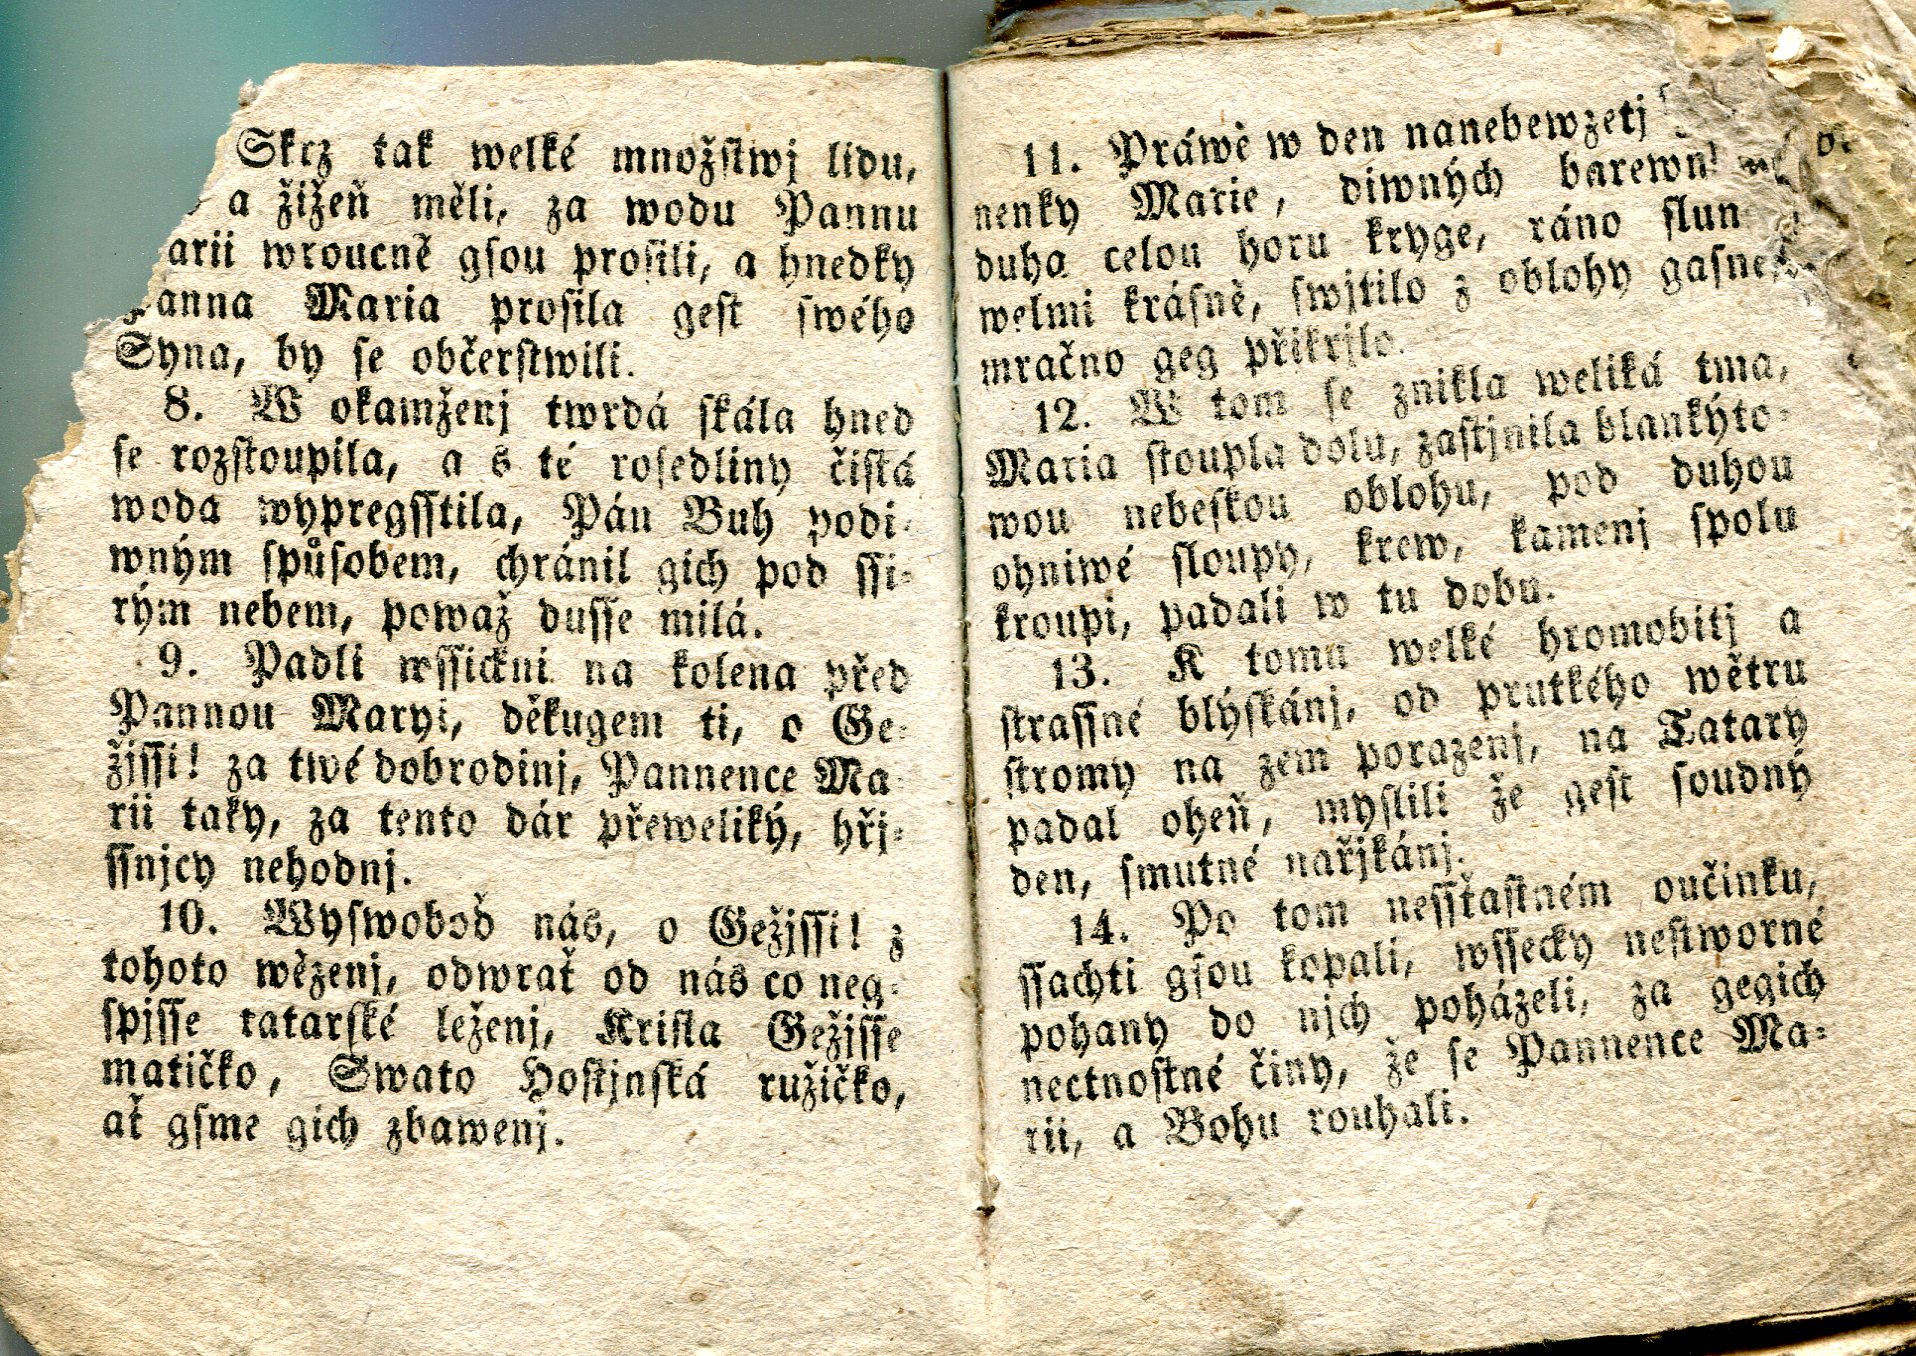 Skrz tak welké množstwj lidu,
a žižeň měli, za wodu Pannu
arii wroucně gsou prosili, a hnedky
anna Maria prosila gest swého
Syna, by se občerstwili.
8. W okamženj twrdá skála hned
se rozstoupila, a s té rosedliny čistá
woda wypregsstila, Pán Buh podi-
wným spůsobem, chránil gich pod ssi-
rým nebem, powaž dusse milá.
9. Padli wssickni na kolena před
Pannou Maryi, děkugem ti, o Ge-
žjssi! za twé dobrodinj, Pannence Ma-
rii taky, za tento dár přeweliký, hřj-
ssnjcy nehodnj.
10. Wyswoboď nás, o Gežjssi! z
tohoto wězenj, odwrať od nás co neg-
spjsse tatarské leženj, Krista Gežjsse
matičko, Swato Hostjnská ružičko,
ať gsme gich zbawenj.
11. Práwě w den nanebewzetj
nenky Marie, diwných barewn
duha celou horu kryge, ráno slun
welmi krásně, swjtilo z oblohy gasne,
mračno geg přikrjlo.
12. W tom se znikla weliká tma,
Maria stoupla dolu, zastjnila blankýto-
wou nebeskou oblohu, pod duhou
ohniwé sloupy, krew, kamenj spolu
kroupi, padali w tu dobu.
13. K tomu welké hromobitj a
strassné blýskánj, od prutkého wětru
stromy na zem porazenj, na Tatary
padal oheň, myslili že gest soudný
den, smutné nařjkánj.
14. Po tom nessťastném oučinku,
ssachti gsou kopali, wssecky nestworné
pohany do njch poházeli, za gegich
nectnostné činy, že se Pannence Ma-
rii, a Bohu rouhali.